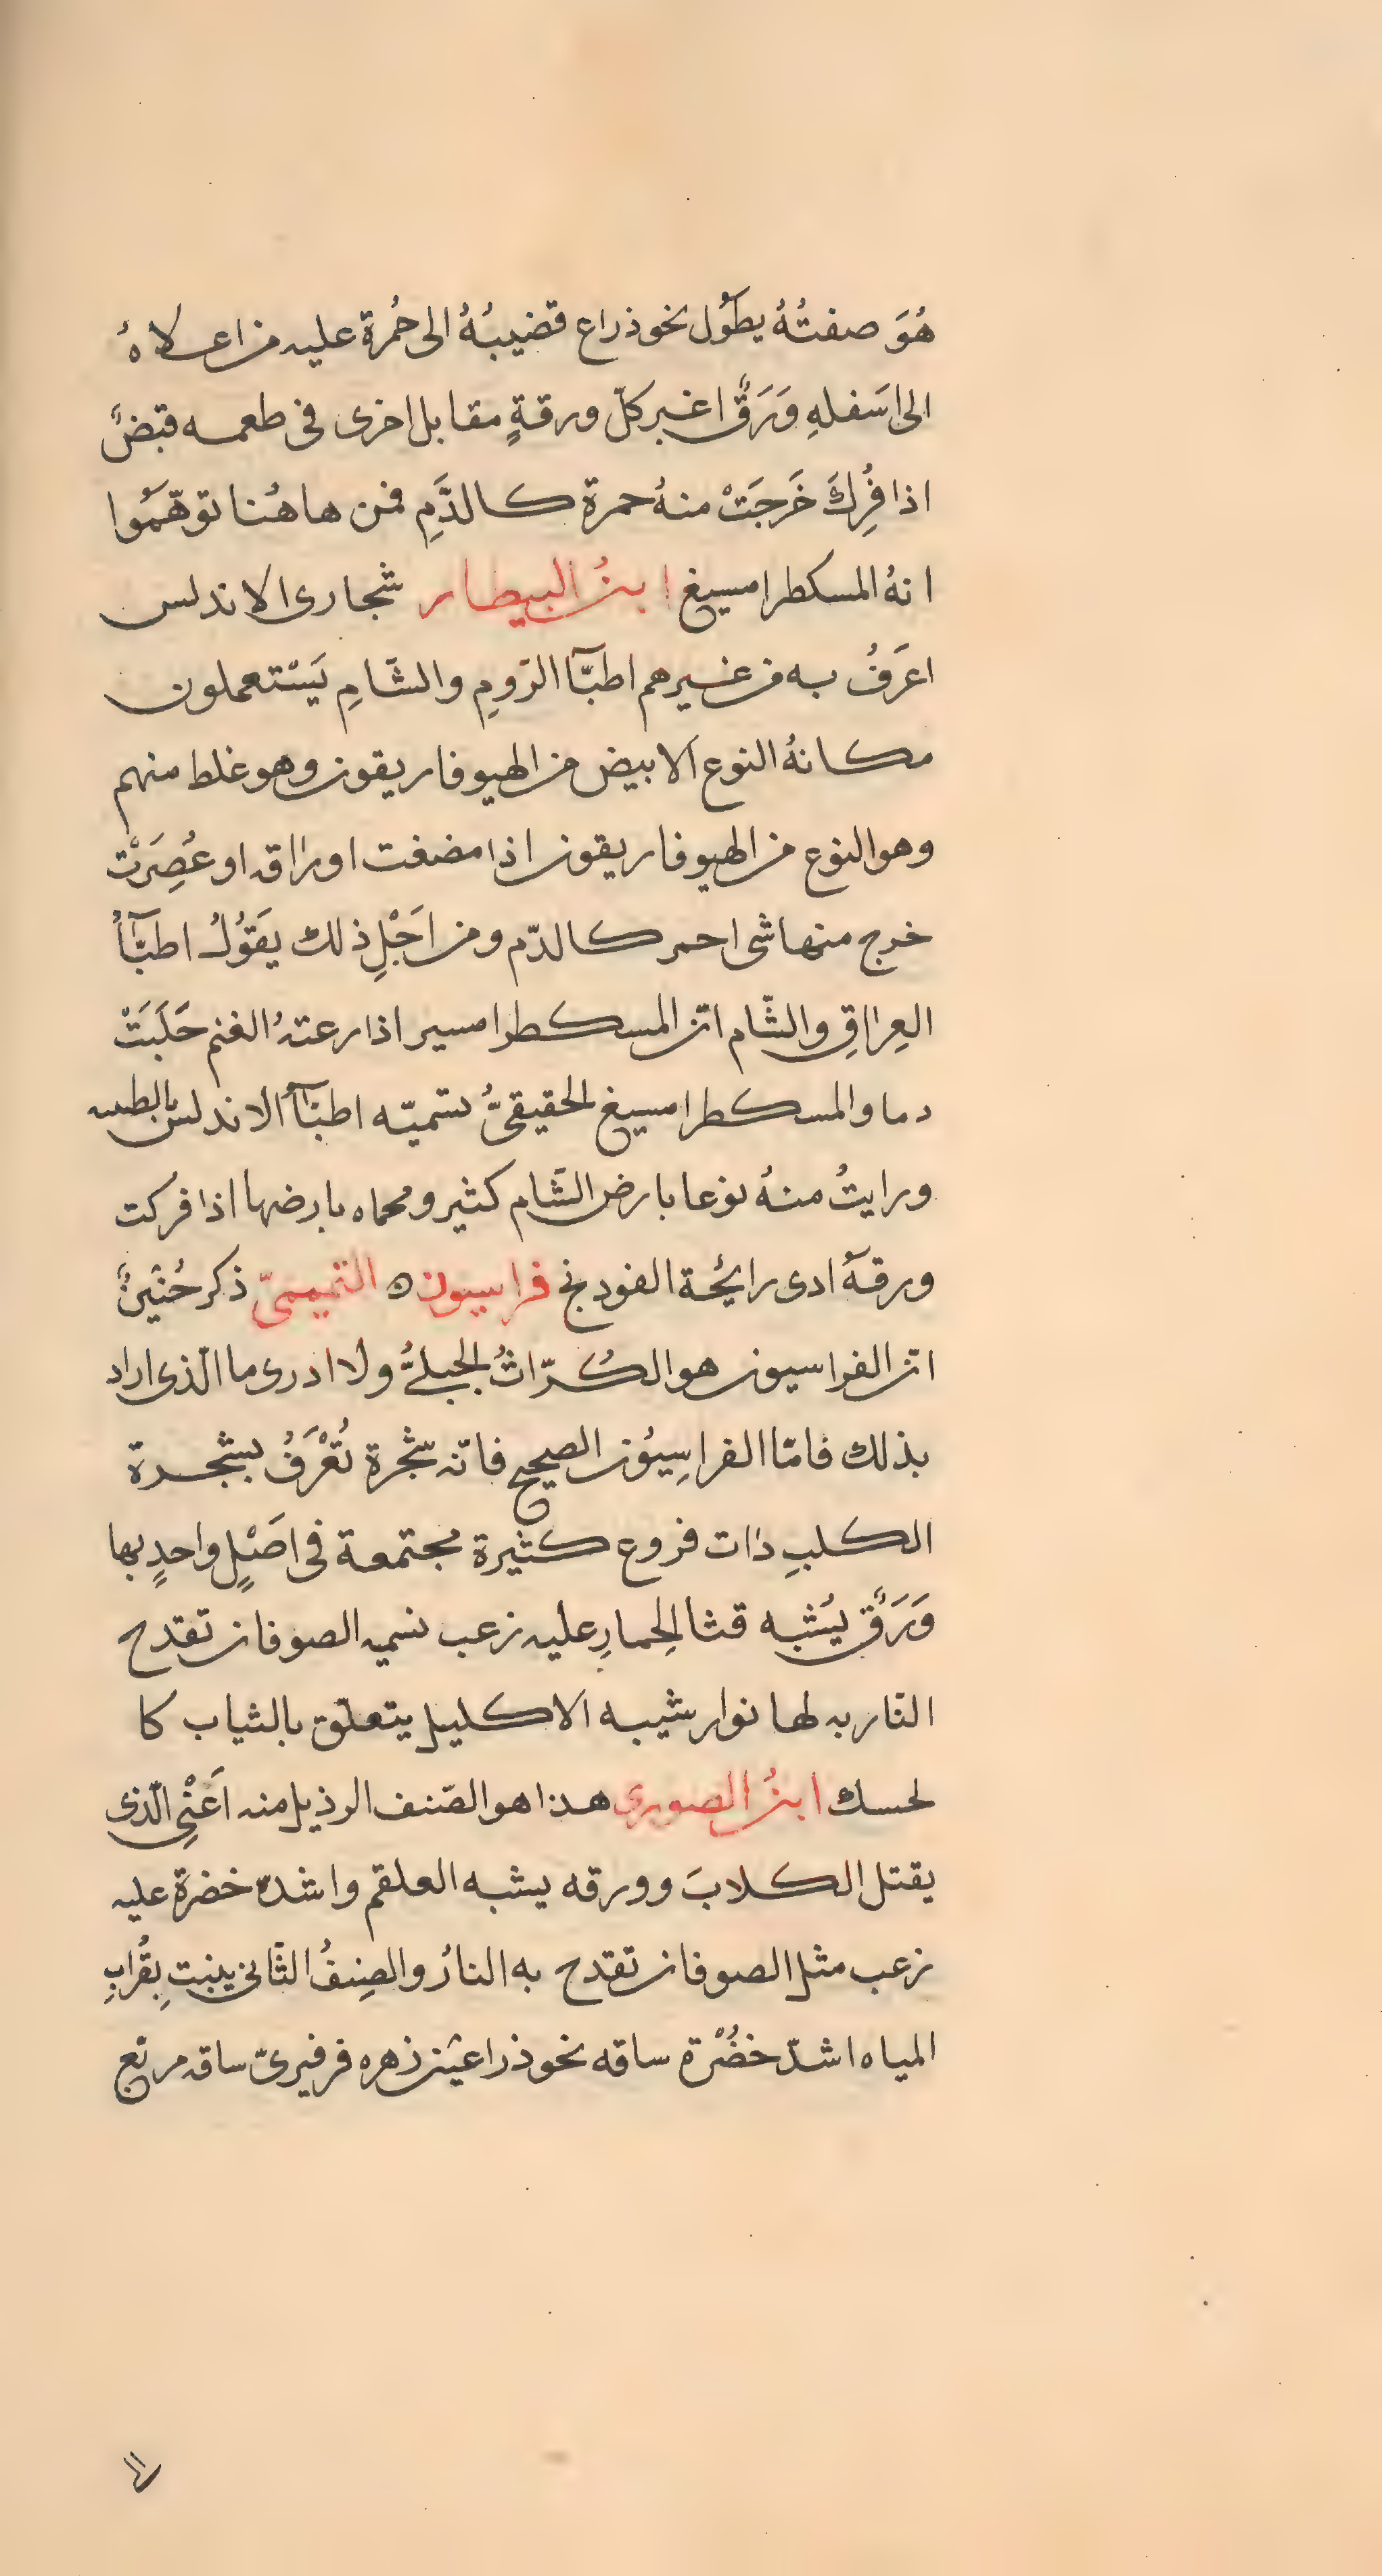 هُوَ صفتُهُ يطوُل نحو ذراع قضيبُهُ الى حُمرة عليه من اعلاهُ
الى اسَفلهِ وَرَقٌ اغبر كلّ ورقةٍ مقابل اخرى فى طعمه قبضٌ
اذا فُرِكَ خَرجَتْ منهُ حمرة كالدَّمِ فمن هاهُنا توهّمَوا
انهُ المسكطرامسيغ ابنُ البيطار شجارى الاندلس
اعرَفُ به من غيرهم اطبّآ الرّومِ والشّامِ يَستعملون
مكانهُ النوع الابيض من الهيوفاريقون وهو غلط منهم
وهو النوع من الهيوفاريقون اذا مضغت اوراقه او عُصِرَتْ
خرج منها شى احمر كالدّم ومن اجَلِ ذلك يَقوُلُ اطبّآُ
العِراقِ والشّام انّ المسكطرامسير اذا رعتهُ الغنم حَلَبَتْ
دما والمسكطرامسيغ الحقيقىُّ تسميّه اطبّآُ الاندلس
ورايتُ منهُ نوعا بارض الشّام كثير بارضها اذا فركت
ورقهُ ادى رايحة الفودنج فراسيون ه التميمىّ ذكر حُنَينٌ
انّ الفراسيون هو الكُرّاثُ الجبلىُّ ولا ادرى ما الّذى اراد
بذلك فامّا الفراسِيُون الصحيح فانّه شجرة تُعْرَفُ بشجرة
الكلبِ ذات فروع كثيرة مجتمعة فى اصَلٍ واحدٍ بها
وَرَقٌ يُشبه قثا الحِمارِ عليه زغب نسميه الصوفان تقدح
النّار به لها نوار شبيه الاكليل يتعلّق بالثياب كا
لحسك ابنُ الصورى هذا هو الصّنف الرذيل منه اَعَنْى الّذى
يقتل الكلابَ وورقه يشبه العلقم واشده خضرة عليه
زغب مثل الصوفان تقدح به النارُ والصِنفُ الثّانى ينبت بقُرابِ
المياه اشدّ خضُرْة ساقه نحو ذراعين زهره فرفيرىّ ساقه مربّع